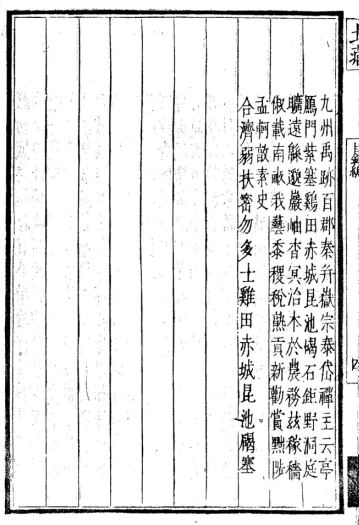 九州禹跡百郡秦并嶽宗泰岱禪主云亭
鴈門紫塞鷄田赤城昆池碣石鉅野洞庭
曠遠緜邈巖岫杳冥治本於農務兹稼穡
俶載南畝我藝黍稷稅熟貢新勸賞黜陟
孟軻敦素史。
合濟弱扶密勿多士雞田赤城昆池碣塞